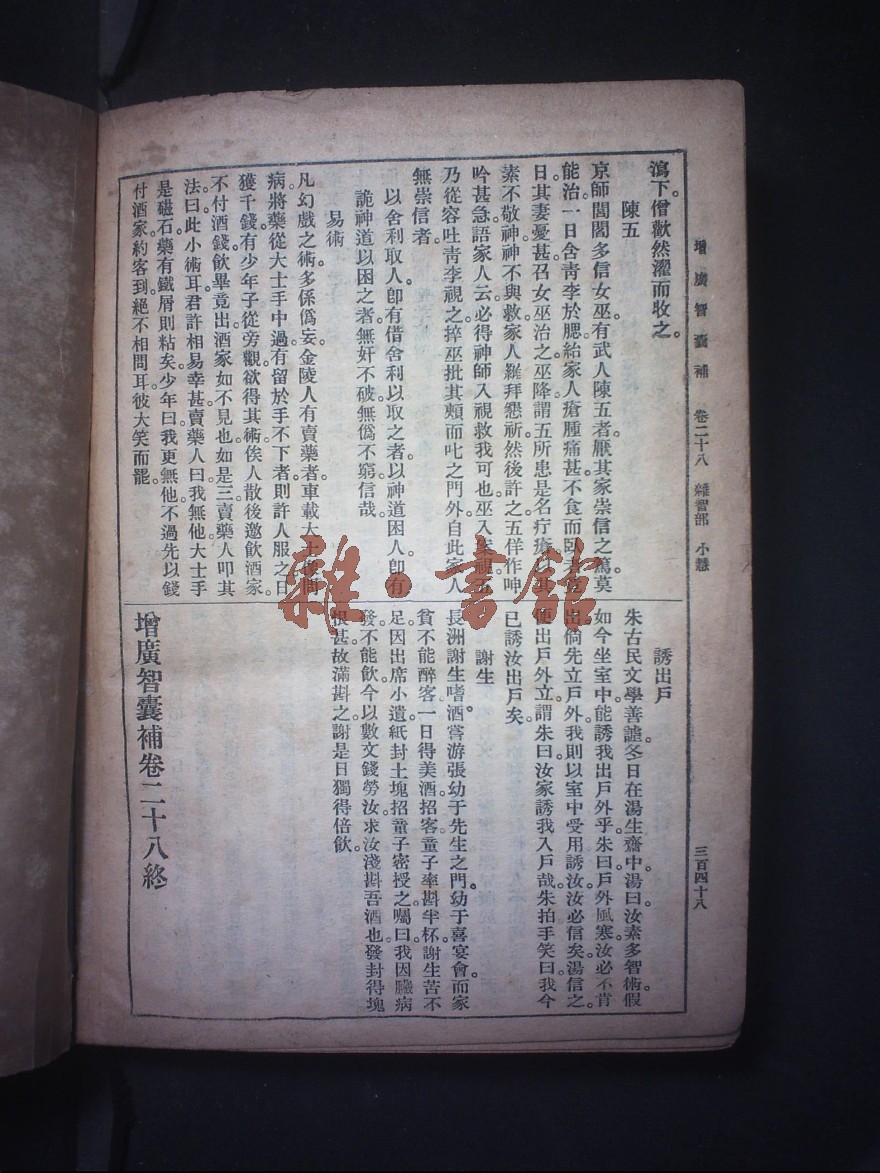 增廣智囊補 卷二十八 雜智部 小慧 三百四十八
瀉下。僧歡然濯而收之。
陳五
京師閭閻多信女巫。有武人陳五者。厭其家崇信之篤。莫
能治。一日含青李於腮。給家人瘡腫痛甚。不食而臥者竟
日。其妻憂甚。召女巫治之。巫降。謂五所患是名疔瘡。以其
素不敬神。神不與救。家人羅拜懇祈。然後許之。五佯作呻
吟甚急。語家人云。必得神師入視救我可也。巫入案視。五
乃從容吐青李視之。捽巫批其頰而叱之門外。自此家人
無崇信者。
以舍利取人。卽有借舍利以取之者。以神道困人。卽有
詭神道以困之者。無奸不破。無僞不窮。信哉。
易術
凡幻戲之術。多係僞妄。金陵人有賣藥者。車載大士像問
病。將藥從大士手中過。有留於手不下者。則許人服之。日
獲千錢。有少年子從旁觀。欲得其術。俟人散後。邀飮酒家。
不付酒錢。飮畢竟出。酒家如不見也。如是三。賣藥人叩其
法。曰。此小術耳。君許相易。幸甚。賣藥人曰。我無他。大士手
是磁石。藥有鐵屑則粘矣。少年曰。我更無他。不過先以錢
付酒家。約客到。絕不相問耳。彼大笑而罷。
誘出戶
朱古民文學善謔。冬日在湯生齋中。湯曰。汝素多智術。假
如今坐室中。能誘我出戶外乎。朱曰。戶外風寒。汝必不肯
出。倘先立戶外。我則以室中受用誘汝。汝必信矣。湯信之。
便出戶外立。謂朱曰。汝家誘我入戶哉。朱拍手笑曰。我今
已誘汝出戶矣。
謝生
長洲謝生嗜酒。嘗游張幼于先生之門。幼于喜宴會。而家
貧不能醉客。一日得美酒招客。童子率斟半杯。謝生苦不
足。因出席小遺。紙封土塊。招童子密授之。囑曰。我因臟病
發。不能飮。今以數文錢勞汝。求汝淺斟吾酒也。發封得塊。
恨甚。故滿斟之。謝是日獨得倍飮。
增廣智囊補卷二十八終
雜·書館